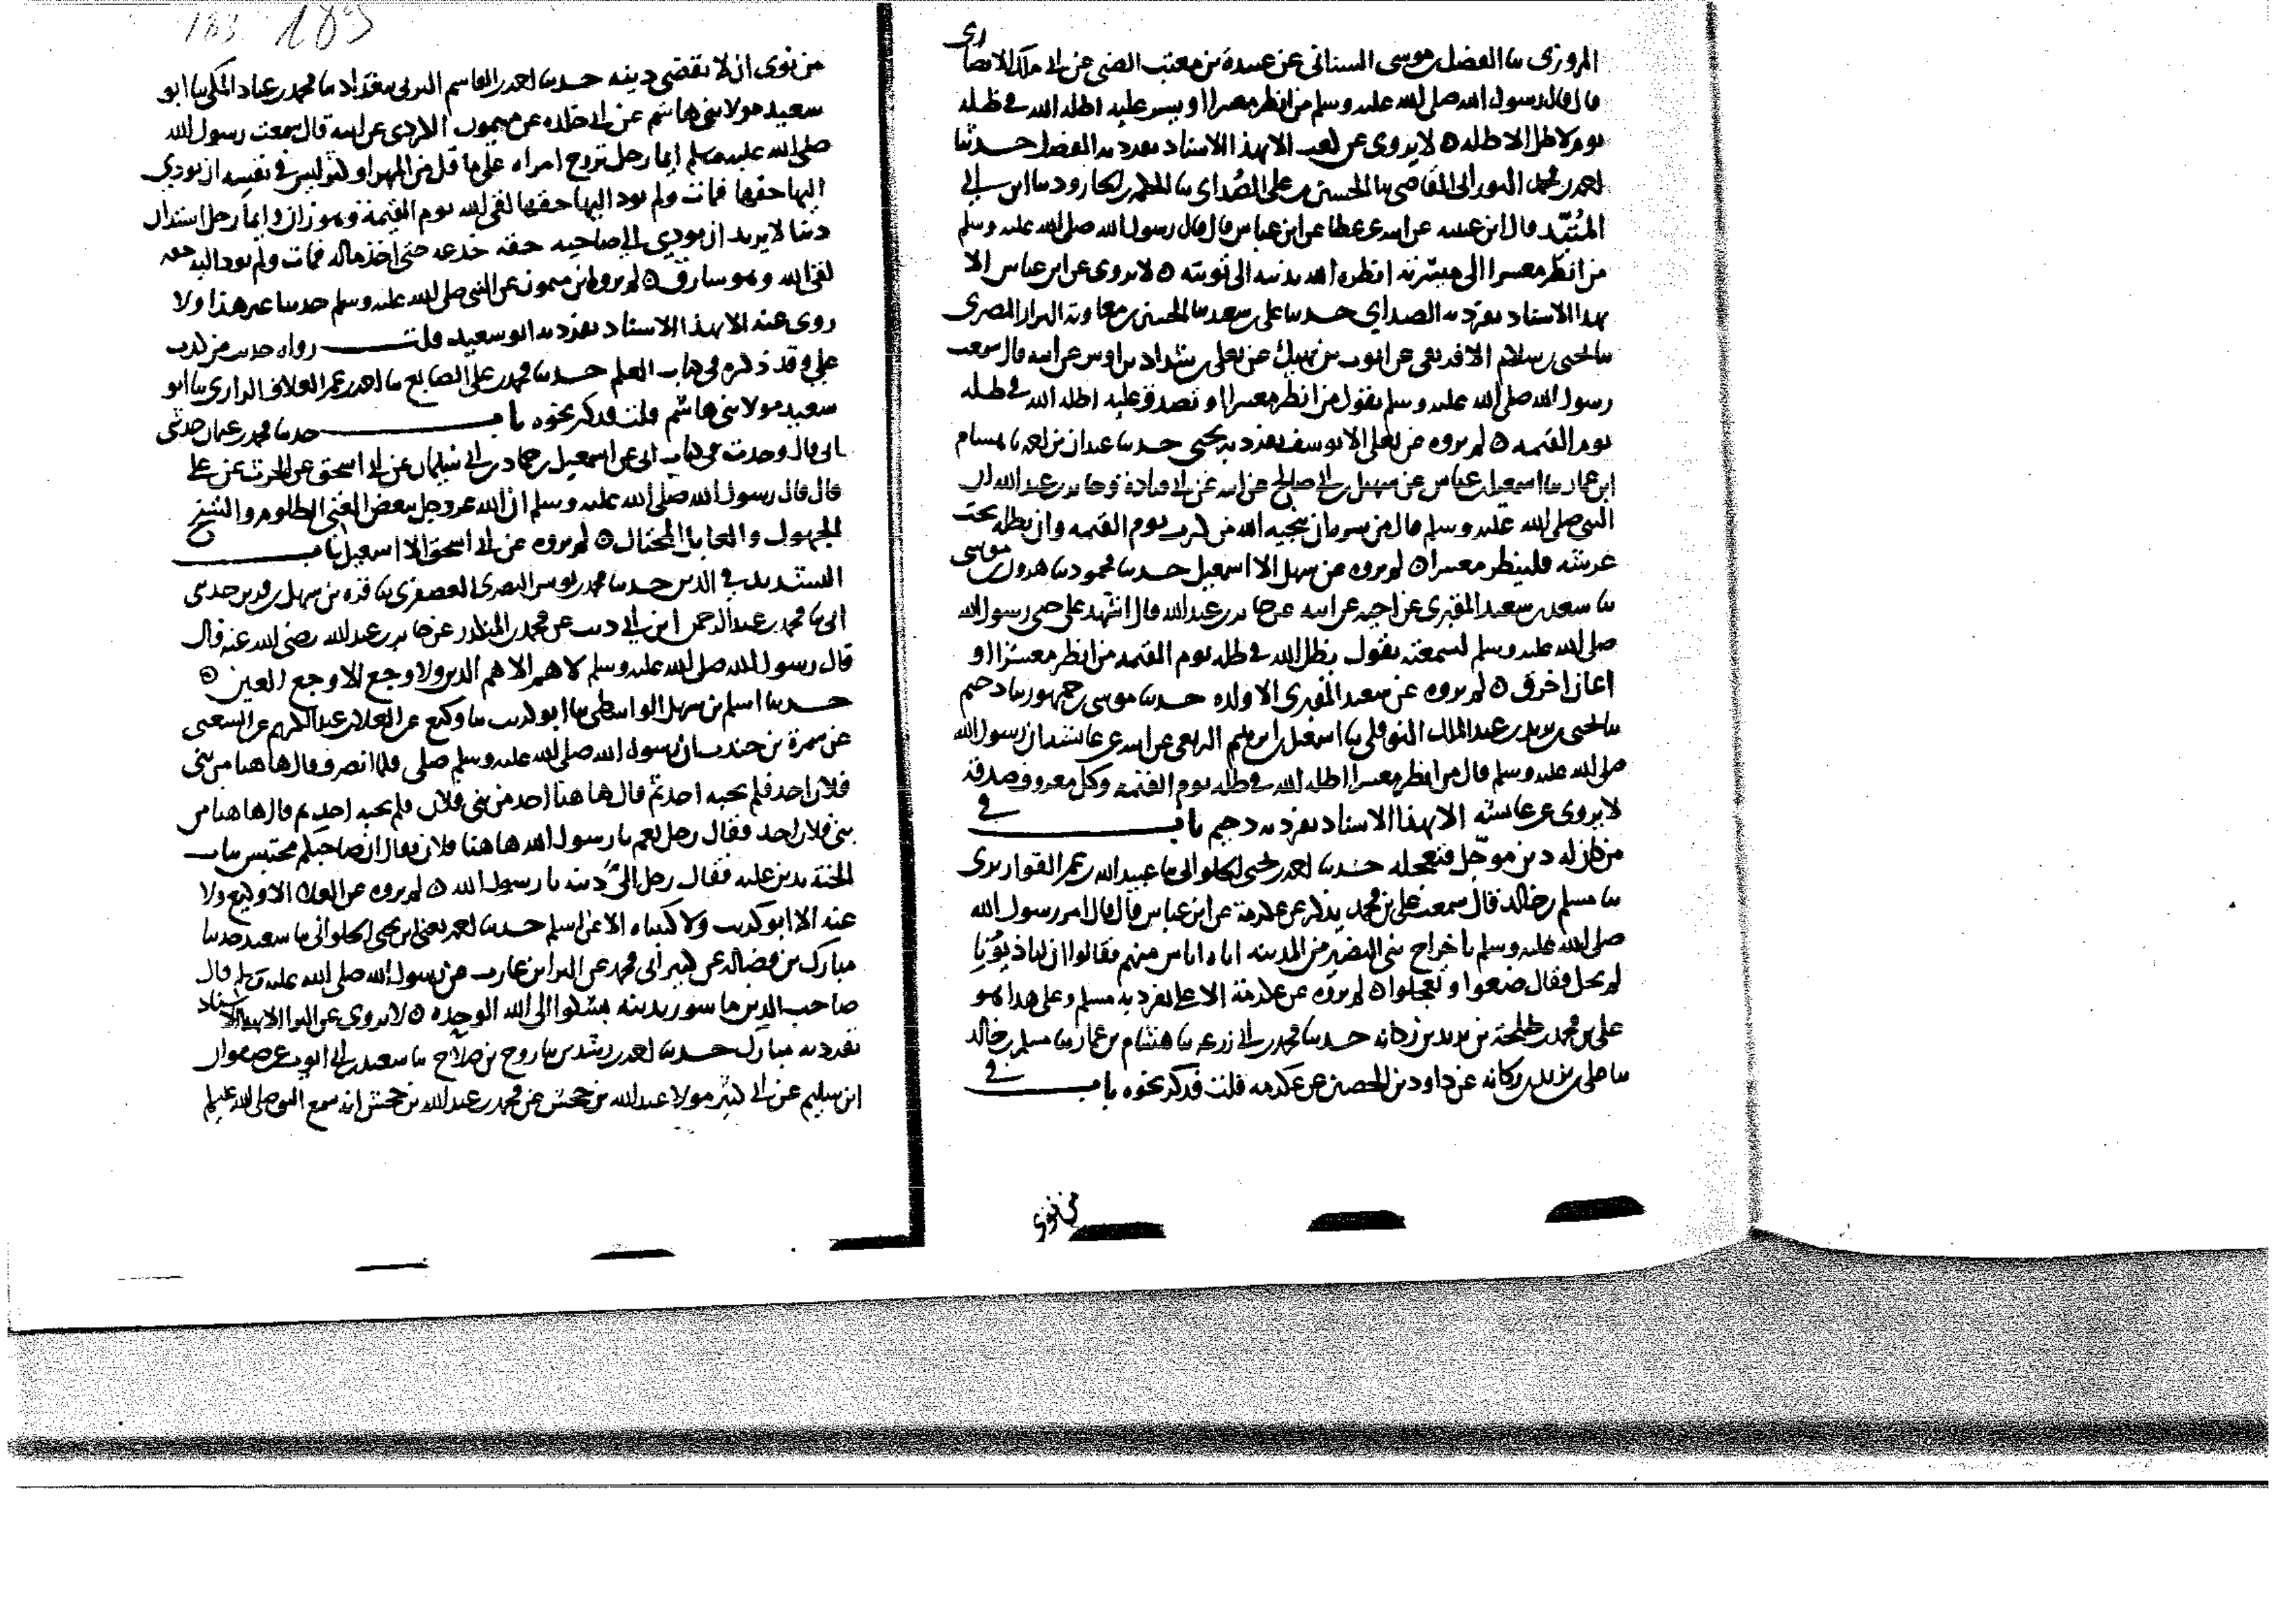 المروزى ثنا الفضل بن موسى السينانى عن عبيدة بن معتب الضبى عن ابى الانصارى
قال قال رسول الله صلى الله عليه وسلم من انظر معسرا او يسر عليه اظله الله فى ظله
يوم لا ظل الا ظله ه لا يروى عن الا بهذا الاسناد تفرد به الفضل حدثنا
احمد بن محمد القاضى ثنا الحسين بن على الصُدَاى ثنا الحكم بن الجارود ثنا ابن ابى
المُتَيّد خال ابن عيينه عن ابيه عن عطا عن ابن عباس قال قال رسول الله صلى الله عليه وسلم
من انظر معسرا الى ميسرته انظره الله بذنبه الى توبته ه لا يروى عن ابن عباس الا
بهذا الاسناد تفرد به الصداي حدثنا على بن سعيد ثنا الحسين بن معاوية البزار المصرى
ثنا يحيى بن سلام الافريقى عن ايوب بن نهيك عن يعلى بن شداد بن اوس عن ابيه قال سمعت
رسول الله صلى الله عليه وسلم يقول من انظر معسرا او تصدق عليه اظله الله فى ظله
يوم القيمه ه لم يروه عن يعلى الا تفرد به يحيى حدثنا عبدان بن احمد ثنا هشام
ابن عمار ثنا اسمعيل بن عياش عن سهيل بن ابى صالح عن ابيه عن ابى قتادة وجابر بن عبد الله ان
النبى صلى الله عليه وسلم قال من سره ان ينجيه الله من كرب يوم القيمه وان يظله تحت
عرشه فلينظر معسرا ه لم يروه عن سهيل الا اسمعيل حدثنا محمود ثنا هرون بن موسى
ثنا سعد بن سعيد المقبرى عن اخيه عن ابيه عن جابر بن عبد الله قال اشهد على حبى رسول الله
صلى الله عليه وسلم لسمعته يقول يظل الله فى ظله يوم القيمه من انظر معسرا او
اعان اخرق ه لم يروه عن سعيد المقبرى الا ولده حدثنا موسى بن جمهور ثنا دحيم
ثنا يحيى بن يزيد بن عبد الملك النوفلى ثنا اسمعيل بن ابرهيم عن ابيه عن عائشه ان رسول الله
صلى الله عليه وسلم قال من انظر معسرا اظله الله فى ظله يوم القيمه وكل معروف صدقه
لا يروى عن عائشه الا بهذا الاسناد تفرد به دحيم باب فى
من كان له دين موجّل فتعجله حدثنا احمد بن يحيى الحلوانى ثنا عبيد الله بن عمر القواريرى
ثنا مسلم بن خالد قال سمعت على بن محمد يذكر عن عكرمة عن ابن عباس قال قال امر رسول الله
صلى الله عليه وسلم باخراج بنى النضير من المدينه اتاه اناس منهم فقالوا ان لنا ديونا
لم تحل فقال ضعوا وتعجلوا ه لم يروه عن عكرمة الا على تفرد به مسلم وعلى هذا هو
على بن محمد بن طلحة بن يزيد بن ركانه حدثنا محمد بن ابى زرعه ثنا هشام بن عمار ثنا مسلم بن خالد
ثنا على بن يزيد بن ركانه عن داود بن الحصين عن عكرمه قلت فذكر نحوه باب فى
من نوى
183 189
من نوى ان لا يقضى دينه حدثنا احمد بن القاسم ببغداد ثنا محمد بن عباد المكى ثنا ابو
سعيد مولا بنى هاشم عن ابى خلده عن ميمون الكردى عن ابيه قال سمعت رسول الله
صلى الله عليه وسلم ايما رجل تزوج امراه على ما قل من المهر او كثر ليس فى نفسه ان يودي
اليها حقها فمات ولم يود اليها حقها لقى الله يوم القيمة وهو زان وايما رجل استدان
دينا لا يريد ان يودي الى صاحبه حقه خدعه حتى اخذ ماله فمات ولم يود اليه حقه
لقى الله وهو سارق ه لم يرو ابن ميمون عن النبى صلى الله عليه وسلم حديثا غير هذا ولا
روى عنه الا بهذا الاسناد تفرد به ابو سعيد قلت رواه حديث من كذب
على وقد ذكره فى كتاب العلم حدثنا محمد بن على الصايغ ثنا احمد بن عمر العلاف الرازى ثنا ابو
سعيد مولا بنى هاشم قلت فذكر نحوه باب حدثنا محمد بن عثمان حدثنى
ابى قال وجدت فى كتاب ابى عن اسمعيل بن حماد بن ابى سليمان عن ابى اسحق عن الحرث عن على
قال قال رسول الله صلى الله عليه وسلم ان الله عز وجل يبغض الغنى الظلوم والشيخ
الجهول والعايل المختال ه لم يروه عن ابى اسحق الا اسمعيل باب
التشديد فى الدين حدثنا محمد بن يونس البصرى العصفرى ثنا قره بن سهل بن قرين حدثنى
ابى ثنا محمد بن عبد الرحمن ابن ابى ذيب عن محمد بن المنكدر عن جابر بن عبد الله رضى الله عنه قال
قال رسول الله صلى الله عليه وسلم لا هم الا هم الدين ولا وجع الا وجع العين ه
حدثنا اسلم بن سهل الواسطى ثنا ابو كريب ثنا وكيع عن العلا بن عبد الكريم عن الشعبى
عن سمرة بن جندب ان رسول الله صلى الله عليه وسلم صلى فلما انصرف قال هاهنا من بنى
فلان احد فلم يجبه احد ثم قال هاهنا احد من بنى فلان فلم يجبه احد ثم قال هاهنا من
بنى فلان احد فقال رجل نعم يا رسول الله هاهنا فلان فقال ان صاحبكم محتبس بباب
الجنة بدين عليه فقال رجل الىّ دينه يا رسول الله ه لم يروه عن العلا الا وكيع ولا
عنه الا ابو كريب ولا كتبناه الا عن اسلم حدثنا احمد يعنى ابن يحيى الحلوانى ثنا سعيد حدثنا
مبارك بن فضاله عن كثير ابى محمد عن البرا بن عازب عن رسول الله صلى الله عليه وسلم قال
صاحب الدين ماسور بدينه يشكوا الى الله الوحده ه لا يروى عن البرا الا بهذا الاسناد
تفرد به مبارك حدثنا احمد بن رشدين ثنا روح بن صلاح ثنا سعيد بن ابى ايوب عن صفوان
ابن سليم عن ابى كثير مولا عبد الله بن جحش عن محمد بن عبد الله بن جحش انه سمع النبى صلى الله عليه